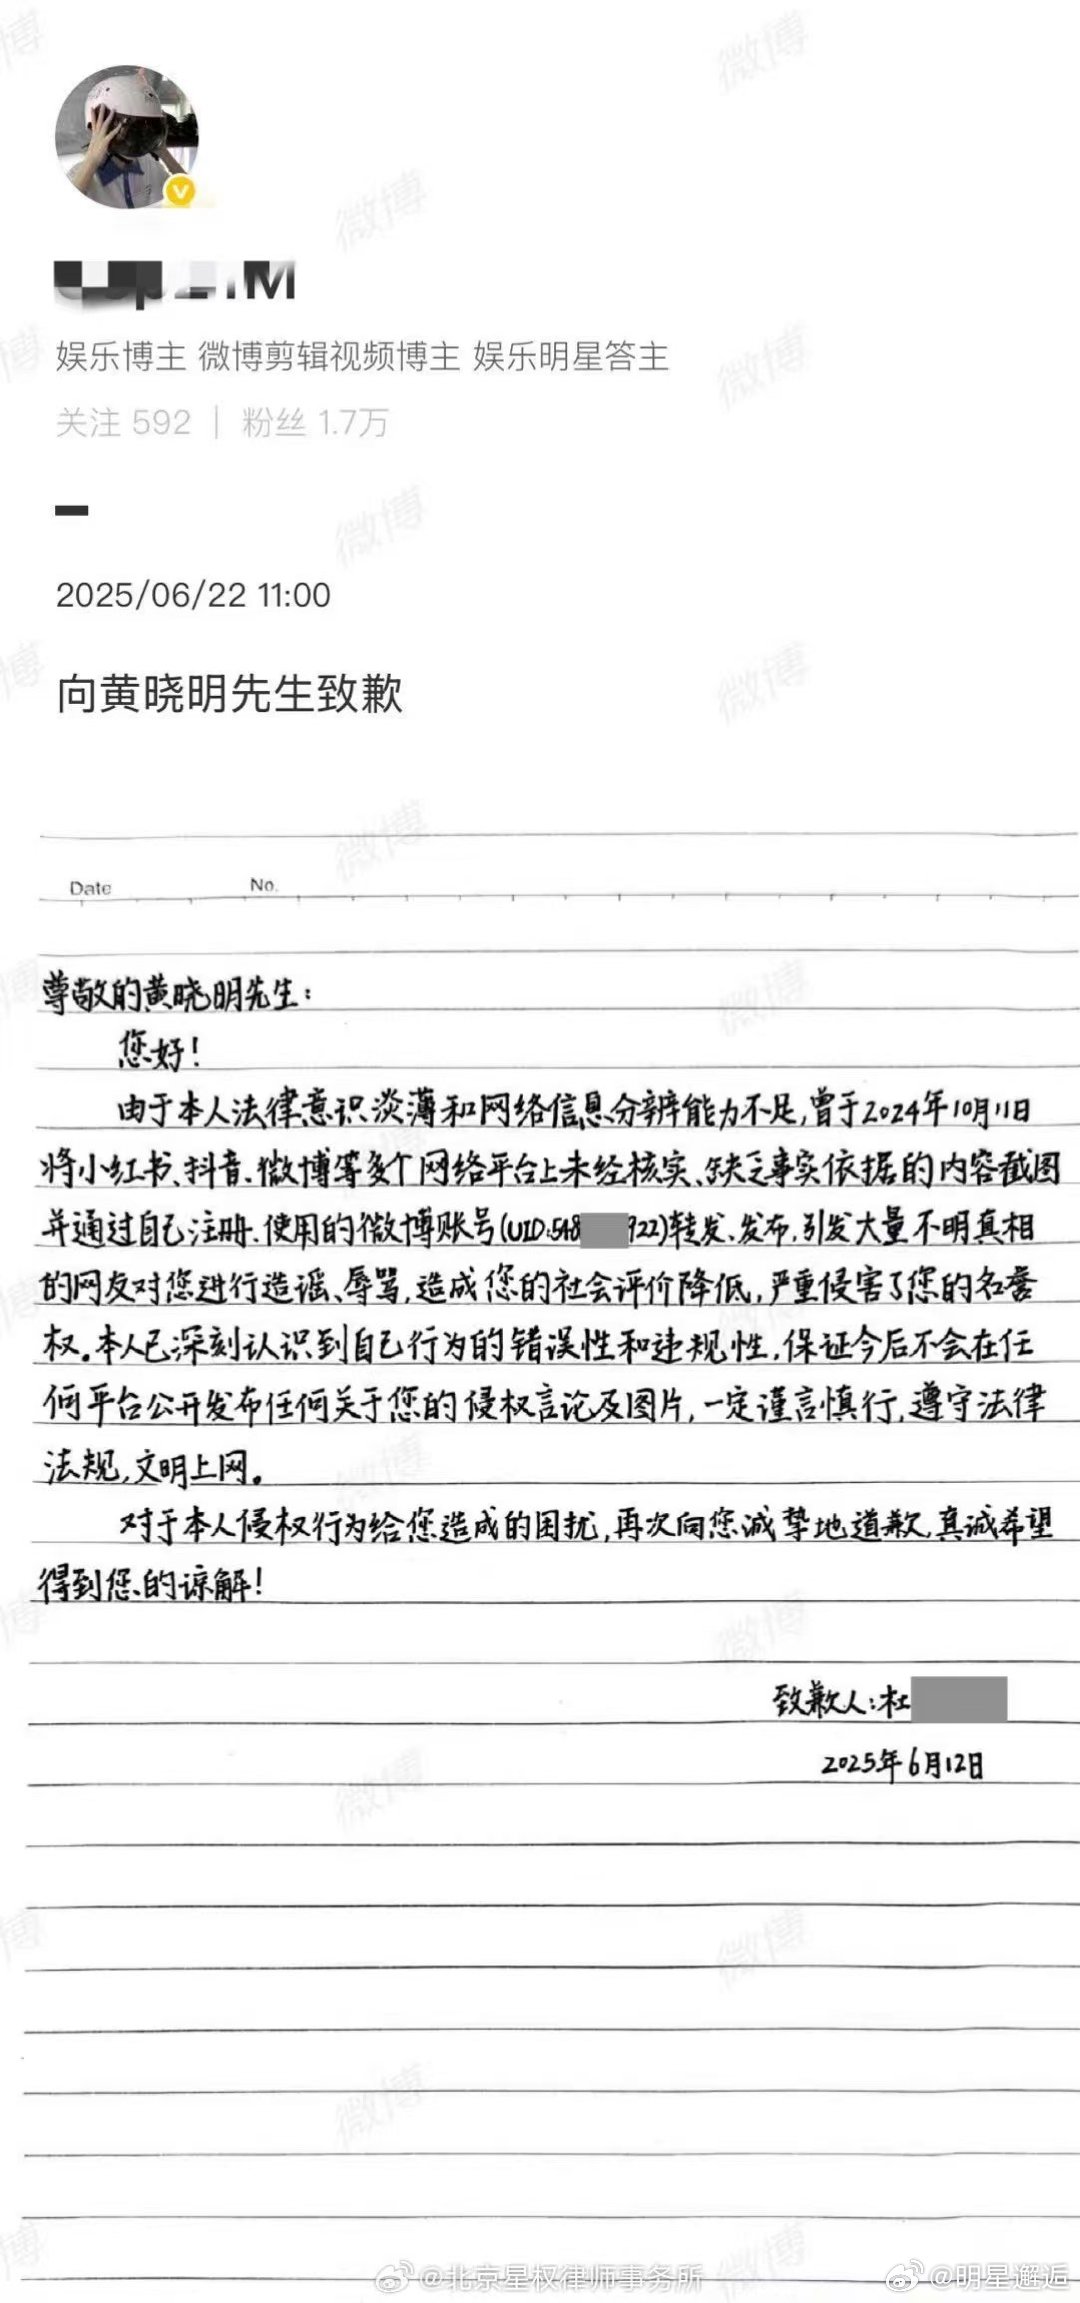 娱乐博主 微博剪辑视频博主 娱乐明星答主
关注 592 | 粉丝 1.7万
2025/06/22 11:00
向黄晓明先生致歉
Date No.
尊敬的黄晓明先生：
您好！
由于本人法律意识淡薄和网络信息分辨能力不足，曾于2024年10月11日
将小红书、抖音、微博等多个网络平台上未经核实、缺乏事实依据的内容截图
并通过自己注册、使用的微博账号(UID:548 922)转发、发布，引发大量不明真相
的网友对您进行造谣、辱骂，造成您的社会评价降低，严重侵害了您的名誉
权。本人已深刻认识到自己行为的错误性和违规性，保证今后不会在任
何平台公开发布任何关于您的侵权言论及图片，一定谨言慎行，遵守法律
法规，文明上网。
对于本人侵权行为给您造成的困扰，再次向您诚挚地道歉，真诚希望
得到您的谅解！
致歉人：杜
2025年6月12日
@北京星权律师事务所
@明星邂逅
微博